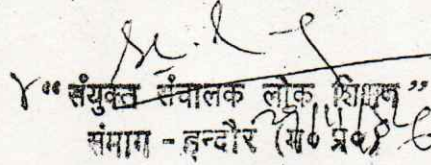 “संयुक्त संचालक लोक शिक्षण”
संभाग - इन्दौर (म० प्र०)